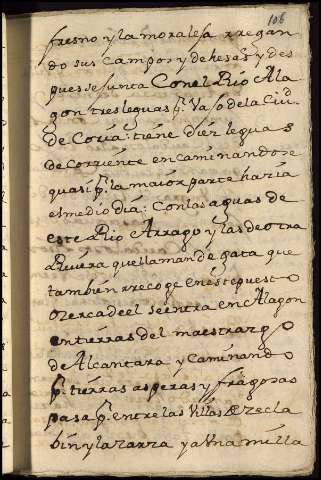 106
fresno y la moraleja rregan
do sus campos y dehesas y des
pues se Junta Con el Rio Ala
gon tres leguas p. Vaso de la Ciud.
de Coria: tiene diez leguas
de Corriente en caminandose
quasi p. la maior parte hazia
el medio dia: Con las aguas de
este Rio Arrago y las de otra
Rivera que llaman de gata que
tambien rrecoge en este puest
o zerca de el se entra en Alagon
en tierras del maestrazgo
de Alcantara y Caminando
p. tierras asperas y fragosas
pasa p. entre las Villas de zecla
bin y la zarza y a Una milla